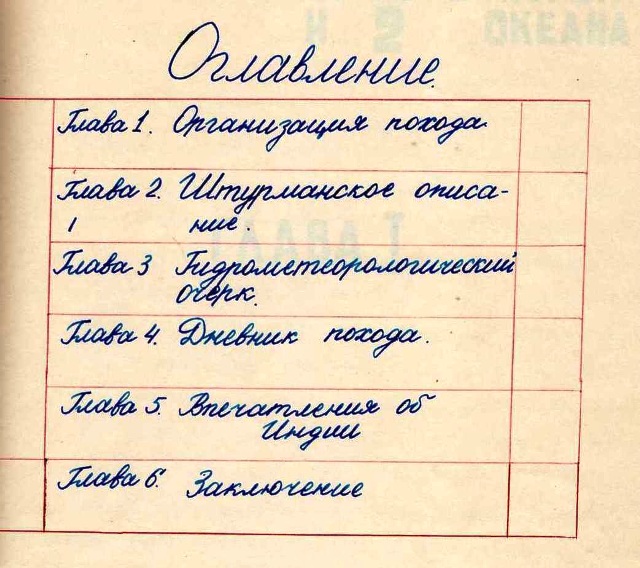 Н 2 ОКЕАНА
Оглавление.
Глава 1. Организация похода.
Глава 2. Штурманское описа-
ние.
Глава 3 Гидрометеорологический
очерк.
Глава 4. Дневник похода.
Глава 5. Впечатления об
Индии
Глава 6. Заключение